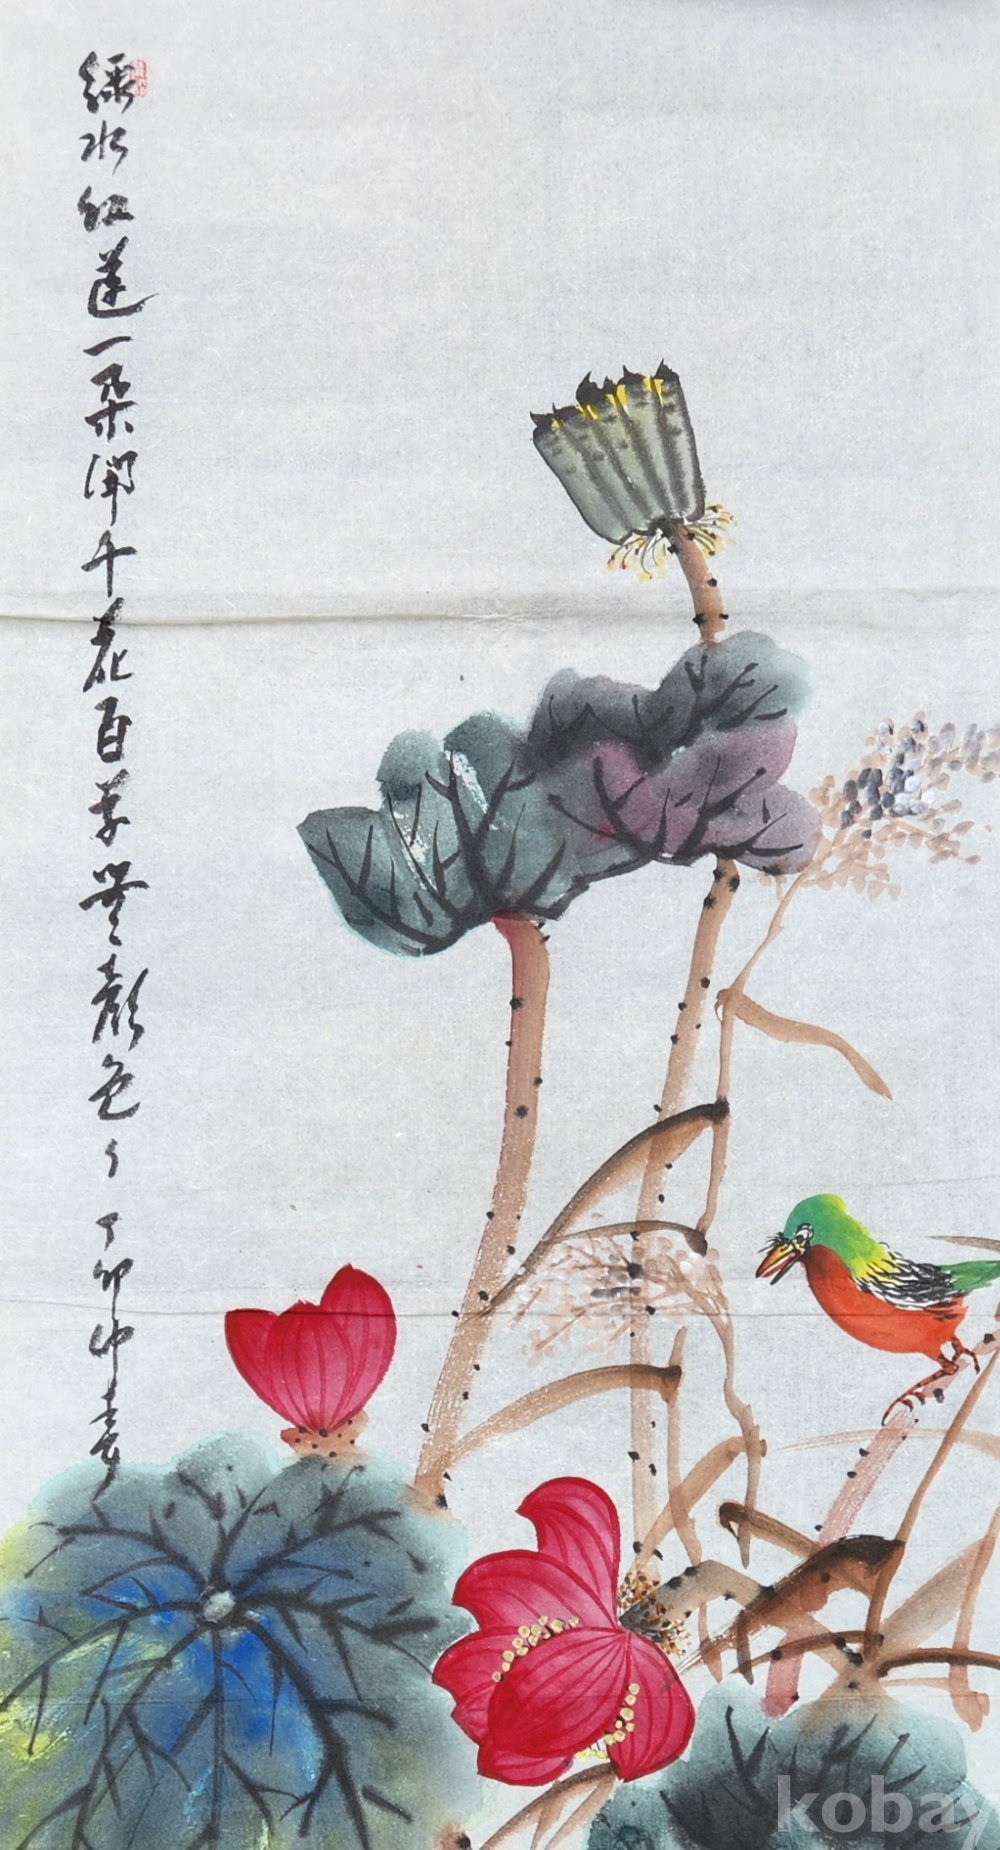 綠水紅蓮一朶開千花百草無顏色 丁卯仲春
kobay